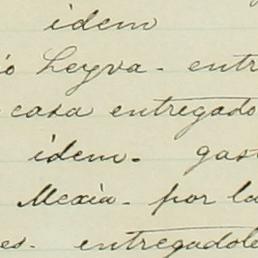 idem
io Leyva - entr
casa entregado
idem - gas
Mexia - por la
es - entregadole